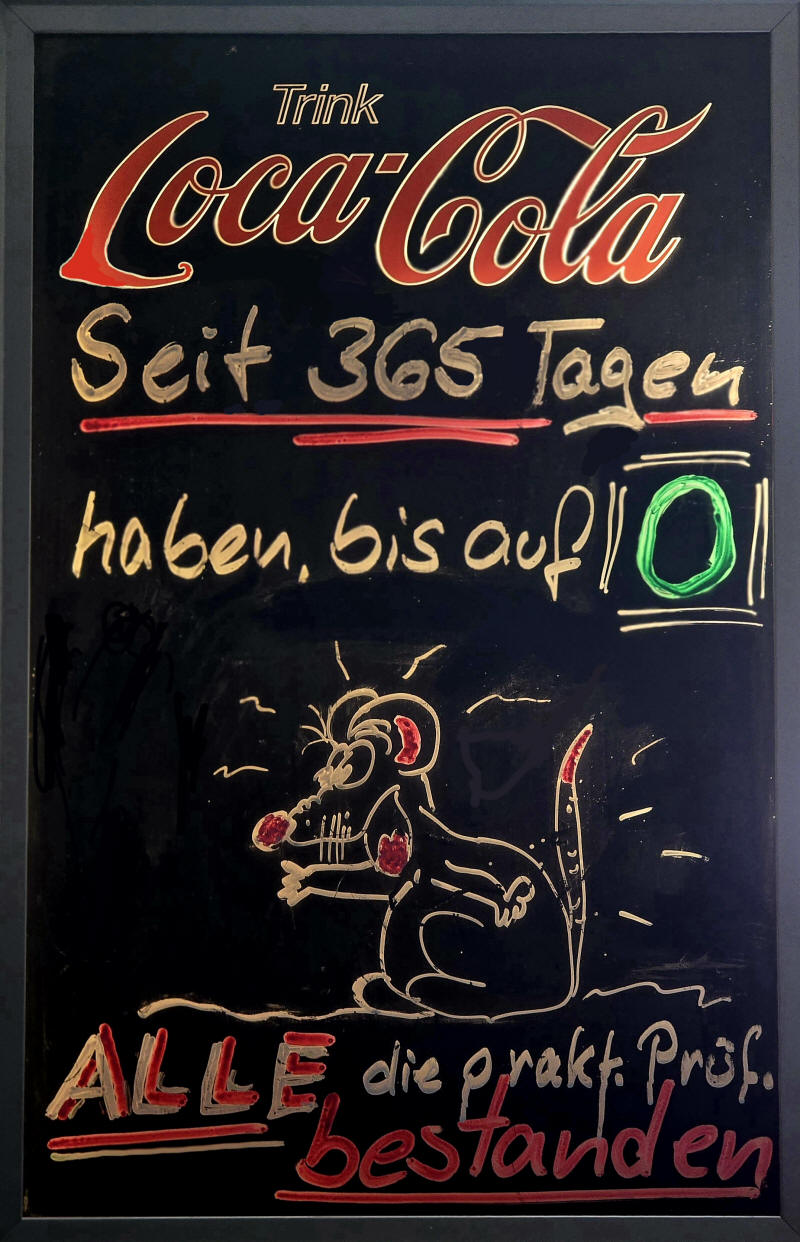 Trink
Coca-Cola
Seit 365 Tagen
haben, bis auf 0
ALLE die prakt. Prüf.
bestanden